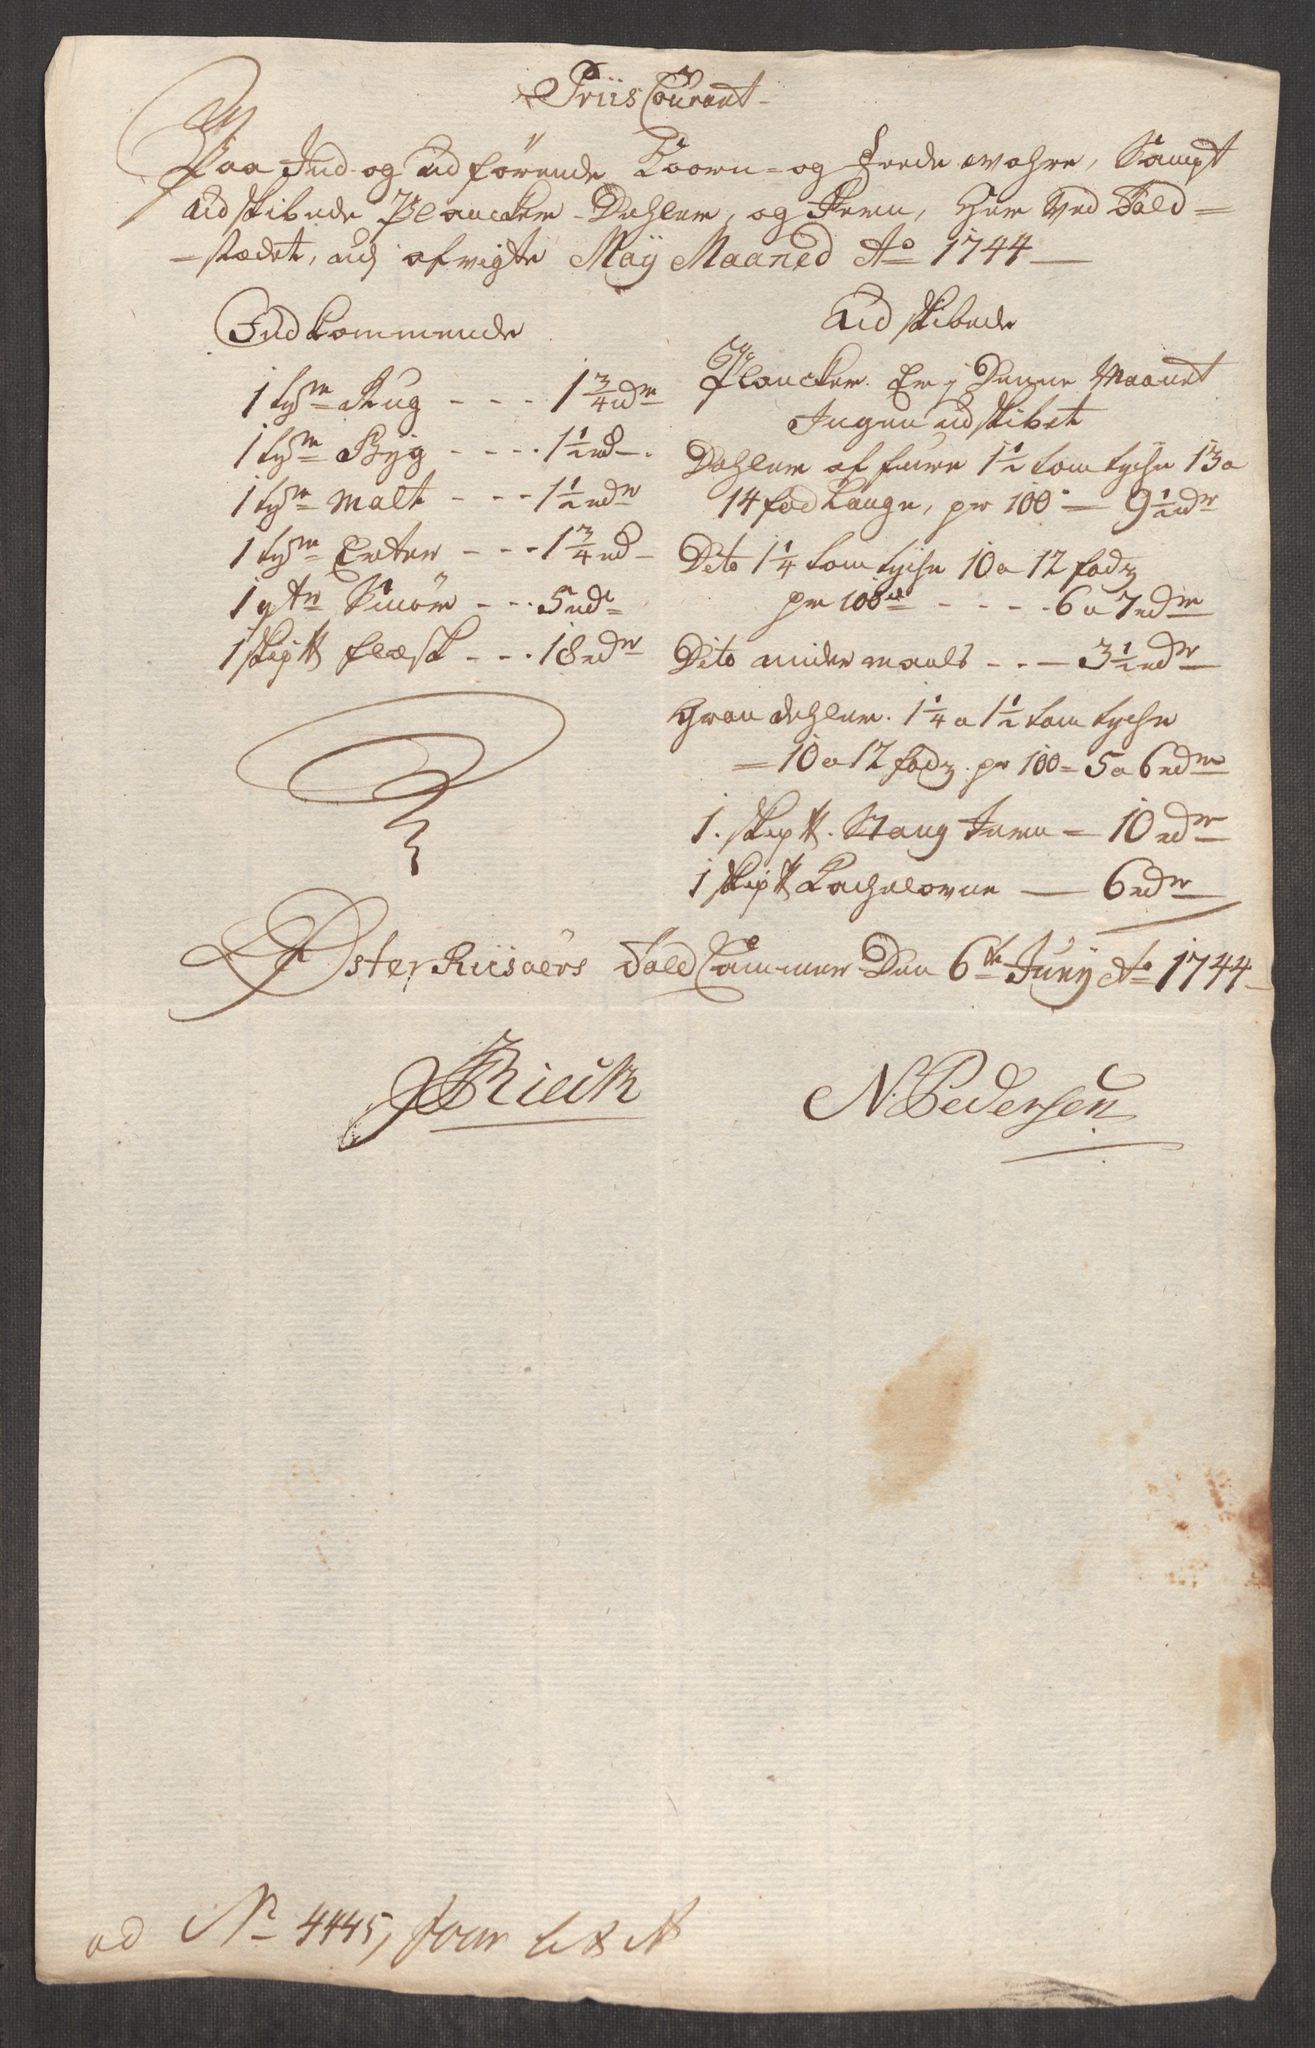 Priis Courant
Paa Ind og udførende Koorn- og fæede wahre, Sampt
udskibede Plancker Dehler, og Jern, Her Ved Told-
stædet, udj afvigte Maij Maaned Ao 1744
Indkommende
1 tdr Rug - - - 1 3/4 rdr
1 tdr Byg - - - 1 1/2 rd
1 tdr Malt - - - 1 1/2 rdr
1 tdr Erter - - - 1 3/4 rd
1 qtr Smør - - 5 rdr
1 skip℔ flæsk - - 18 rdr
Udskibede
Plancker. Er j Denne Maanet
Ingen udskibet
Dehler af furre 1 1/2 tom tycke 13 a
14 fod Lange, pr 100 — 9 1/2 rdr
Dito 1 1/4 tom tycke 10 a 12 fod
pr 100de - - - - 6 a 7 rdr
Dito under maals - - — 3 1/2 rdr
Gran dehler. 1 1/4 a 1 1/2 tom tycke
= 10 a 12 fod pr 100 = 5 a 6 rdr
1. skip℔. Stang Jern = 10 rdr
1 skip℔ Kachelovne — 6 rdr
Øster Riisøers Told Cammer Den 6te Junij Ao 1744
Rieck
N. Pedersen
ad No 4445,